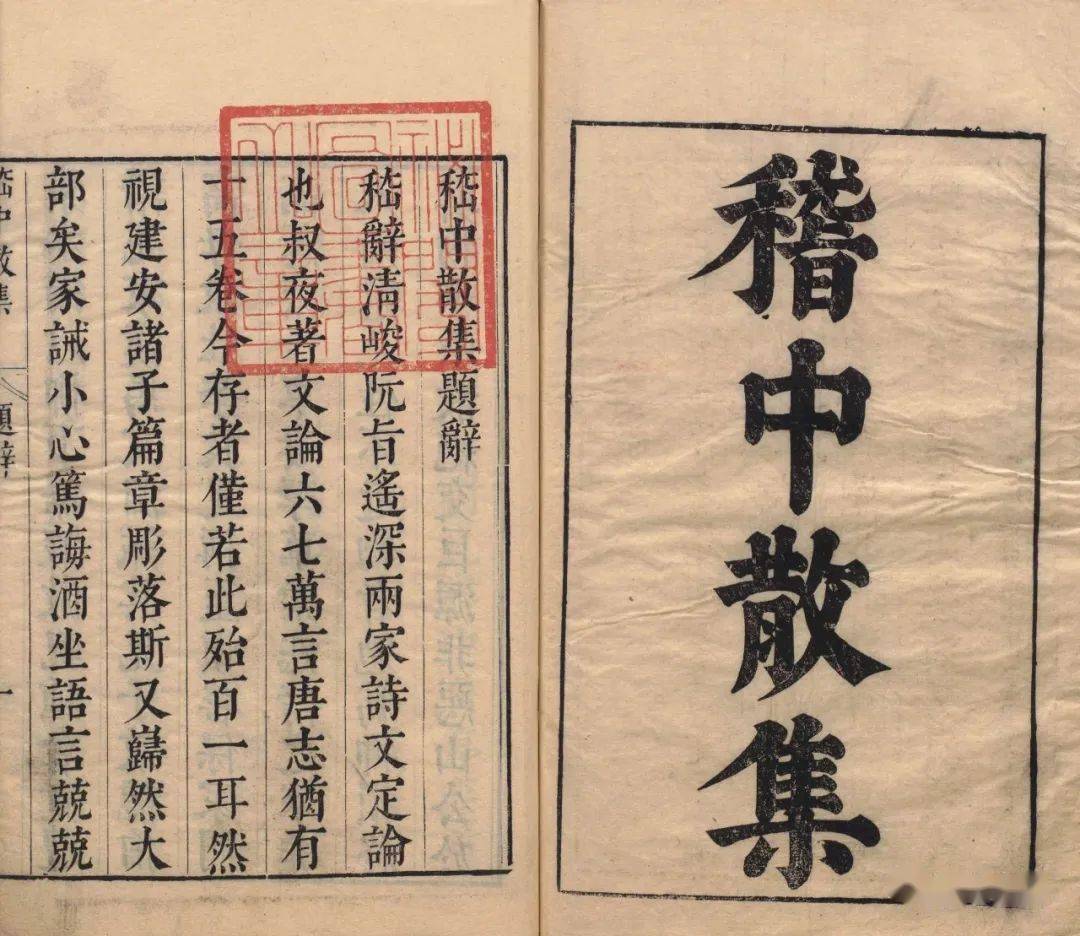 稽中散集
嵇中散集題辭
嵇辭清峻阮旨遙深兩家詩文定論
也叔夜著文論六七萬言唐志猶有
十五卷今存者僅若此殆百一耳然
視建安諸子篇章彫落斯又巋然大
部矣家誡小心篤誨酒坐語言兢兢
嵇中散集 題辭 一